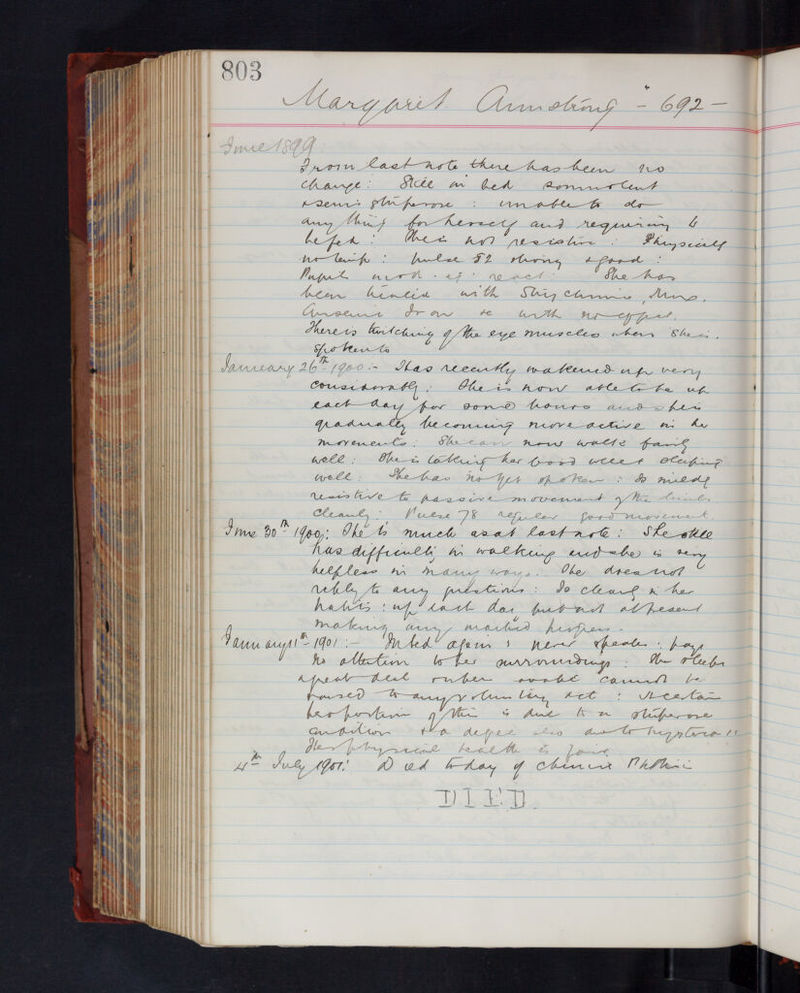 803
Margaret Armstrong - 692 -
June 1899
From last note there has been no
change: Still in bed somnolent
& semi stuporose : unable to do
any thing for herself and requiring to
be fed : She is not resistive : Physically
no : pulse 52 strong & good :
Pupils mod. react : She has
been treated with Strychnine,
Arsenic Iron &c with no effect.
There is twitching of the eye muscles when she is
spoken to
January 26th 1900 :- Has recently wakened up very
considerably : She is now able to be up
each day for some hours and she is
gradually becoming more active in her
movements : She can now walk fairly
well : She is taking her food well & sleeping
well : She has not yet spoken : Is mildly
resistive to passive movement of the limbs
cleanly : Pulse 78 regular good
June 30th 1900 : She is much as at last note : She still
has difficulty in walking and she is very
helpless in many ways. She does not
reply to any questions : Is cleanly in her
habits : up each day but not at present
making any marked progress.
January 11th 1901 :- In bed again : never speaks : pays
no attention to her surroundings : She sleeps
a great deal when awake cannot be
roused to any voluntary act : A certain
proportion of this is due to a stuporose
condition & a degree also due to hysteria
Her physical health is fair
4th July 1901 : Died today of
DIED.